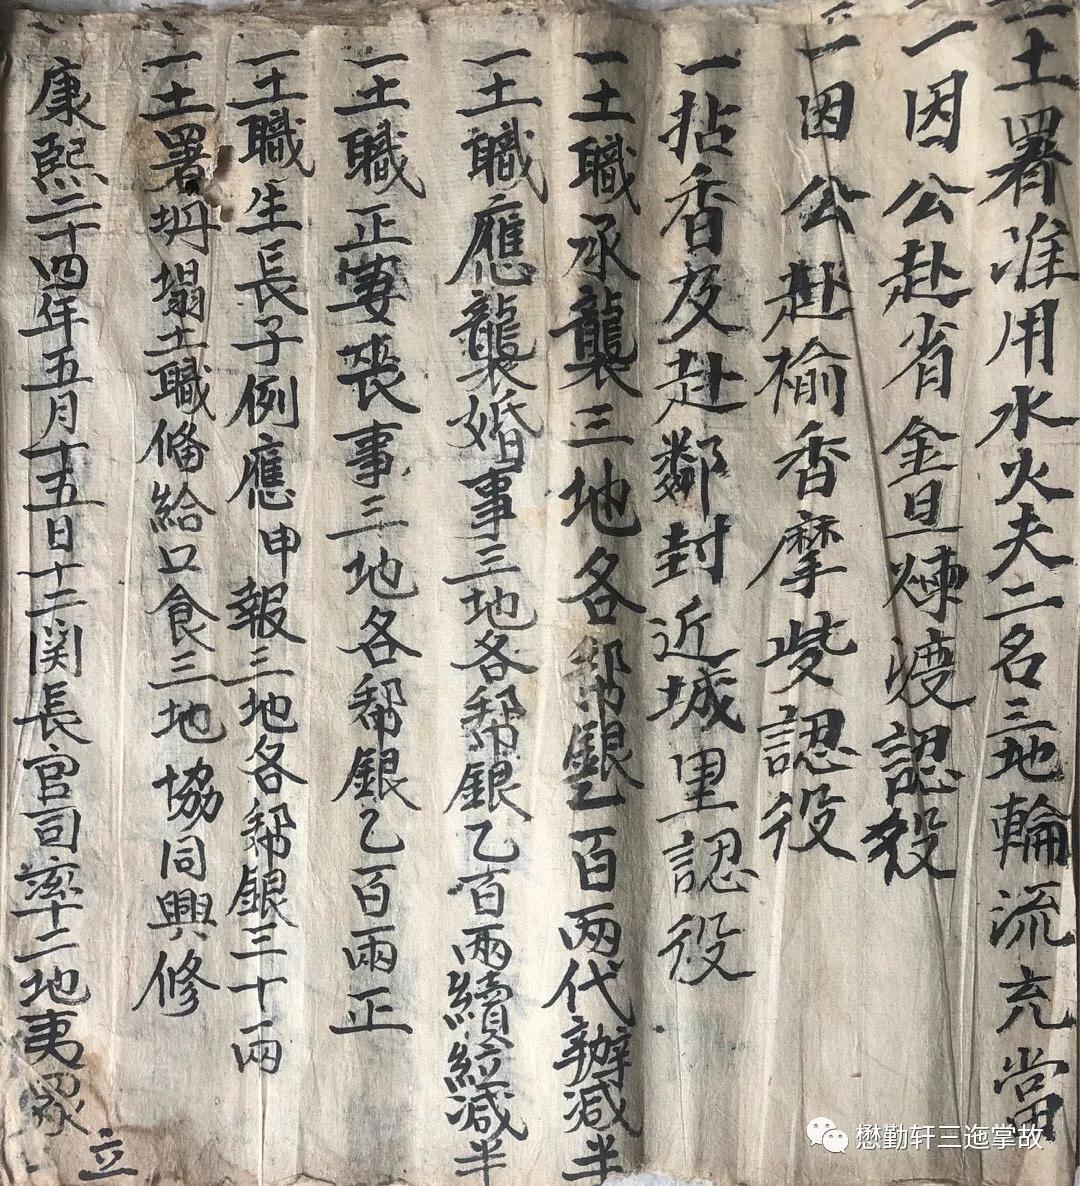 一土署准用水火夫二名三地輪流充當
一因公赴省金旦煉渡認役
一因公赴榆香摩岌認役
一拈香及赴鄰封近城里認役
一土職承襲三地各幫銀乙百两代辦减半
一土職應襲婚事三地各幫銀乙百兩續絃减半
一土職正妻丧事三地各幫銀乙百兩正
一土職生長子例應申報三地各幫銀三十兩
一土署坍塌土職俻給口食三地協同興修
康熙二十四年五月十五日十二関長官司率十二地夷眾立
懋勤轩三迤掌故